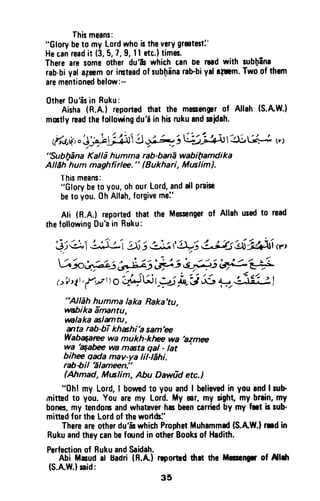 This means:
"Glory be to my Lord who is the very greatest."
He can read it (3, 5, 7, 9, 11 etc.) times.
There are some other du'ās which can be read with subḥāna
rab-bi yal aẓeem or instead of subḥāna rab-bi yal aẓeem. Two of them
are mentioned below:-
Other Du'ās in Ruku:
Aisha (R.A.) reported that the messenger of Allah (S.A.W.)
mostly read the following du'ā in his ruku and sajdah.
"Subḥāna Kallā humma rab-banā wabiḥamdika
Allāh hum maghfirlee." (Bukhari, Muslim).
This means:
"Glory be to you, oh our Lord, and all praise
be to you. Oh Allah, forgive me."
Ali (R.A.) reported that the Messenger of Allah used to read
the following Du'a in Ruku:
"Allāh humma laka Raka'tu,
wabika āmantu,
walaka aslamtu,
anta rab-bī khashi'a sam'ee
Wabaṣaree wa mukh-khee wa 'aẓmee
wa 'aṣabee wa masta qal - lat
bihee qada mav-ya lil-lāhi.
rab-bil 'ālameen."
(Ahmad, Muslim, Abu Dawūd etc.)
"Oh! my Lord, I bowed to you and I believed in you and I sub-
mitted to you. You are my Lord. My ear, my sight, my brain, my
bones, my tendons and whatever has been carried by my feet is sub-
mitted for the Lord of the worlds."
There are other du'ās which Prophet Muhammad (S.A.W.) read in
Ruku and they can be found in other Books of Hadith.
Perfection of Ruku and Saidah.
Abi Masud al Badri (R.A.) reported that the Messenger of Allah
(S.A.W.) said:
35